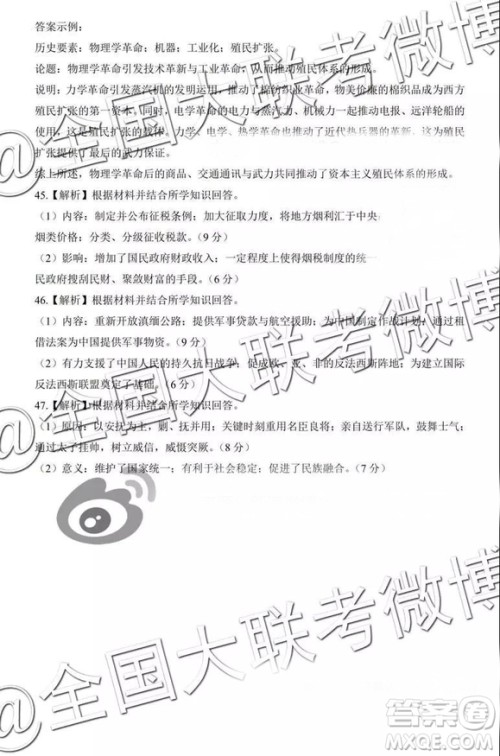 答案示例：
历史要素：物理学革命；机器；工业化；殖民扩张。
论题：物理学革命引发技术革新与工业革命，从而推动殖民体系的形成。
说明：力学革命引发蒸汽机的发明运用，推动了棉纺织业革命，物美价廉的棉织品成为西方
殖民扩张的第一资本。同时，电学革命的电力与蒸汽力、机械力一起推动电报、远洋轮船的
使用，这是殖民扩张的载体。力学、电学、热学革命推动了近代热兵器的革新，这为殖民
扩张提供了最后的武力保证。
综上所述，物理学革命后的商品、交通通讯与武力共同推动了资本主义殖民体系的形成。
45.【解析】根据材料并结合所学知识回答。
（1）内容：制定并公布征税条例；加大征取力度，将地方烟利汇于中央
烟类价格：分类、分级征收税款。（9 分）
（2）影响：增加了国民政府财政收入；一定程度上使得烟税制度的统一
民政府搜刮民财、聚敛财富的手段。（6 分）
46.【解析】根据材料并结合所学知识回答。
（1）内容：重新开放滇缅公路；提供军事贷款与航空援助；为中国制定作战计划；通过租
借法案为中国提供军事物资。（9 分）
（2）有力支援了中国人民的持久抗日战争，促成亚、欧、美、非的反法西斯阵地；为建立国际
反法西斯联盟奠定了基础。（6 分）
47.【解析】根据材料并结合所学知识回答。
（1）原因：以安抚为主，以威慑为用；关键时刻重用名臣良将；身先士卒，鼓舞士气；
太子挂帅，树立威信，威慑突厥。（8 分）
（2）意义：维护了国家统一；有利于社会稳定；促进了民族融合。（7 分）
@全国大联考微博
@全国大联考微博
答案圈
MXQE.COM